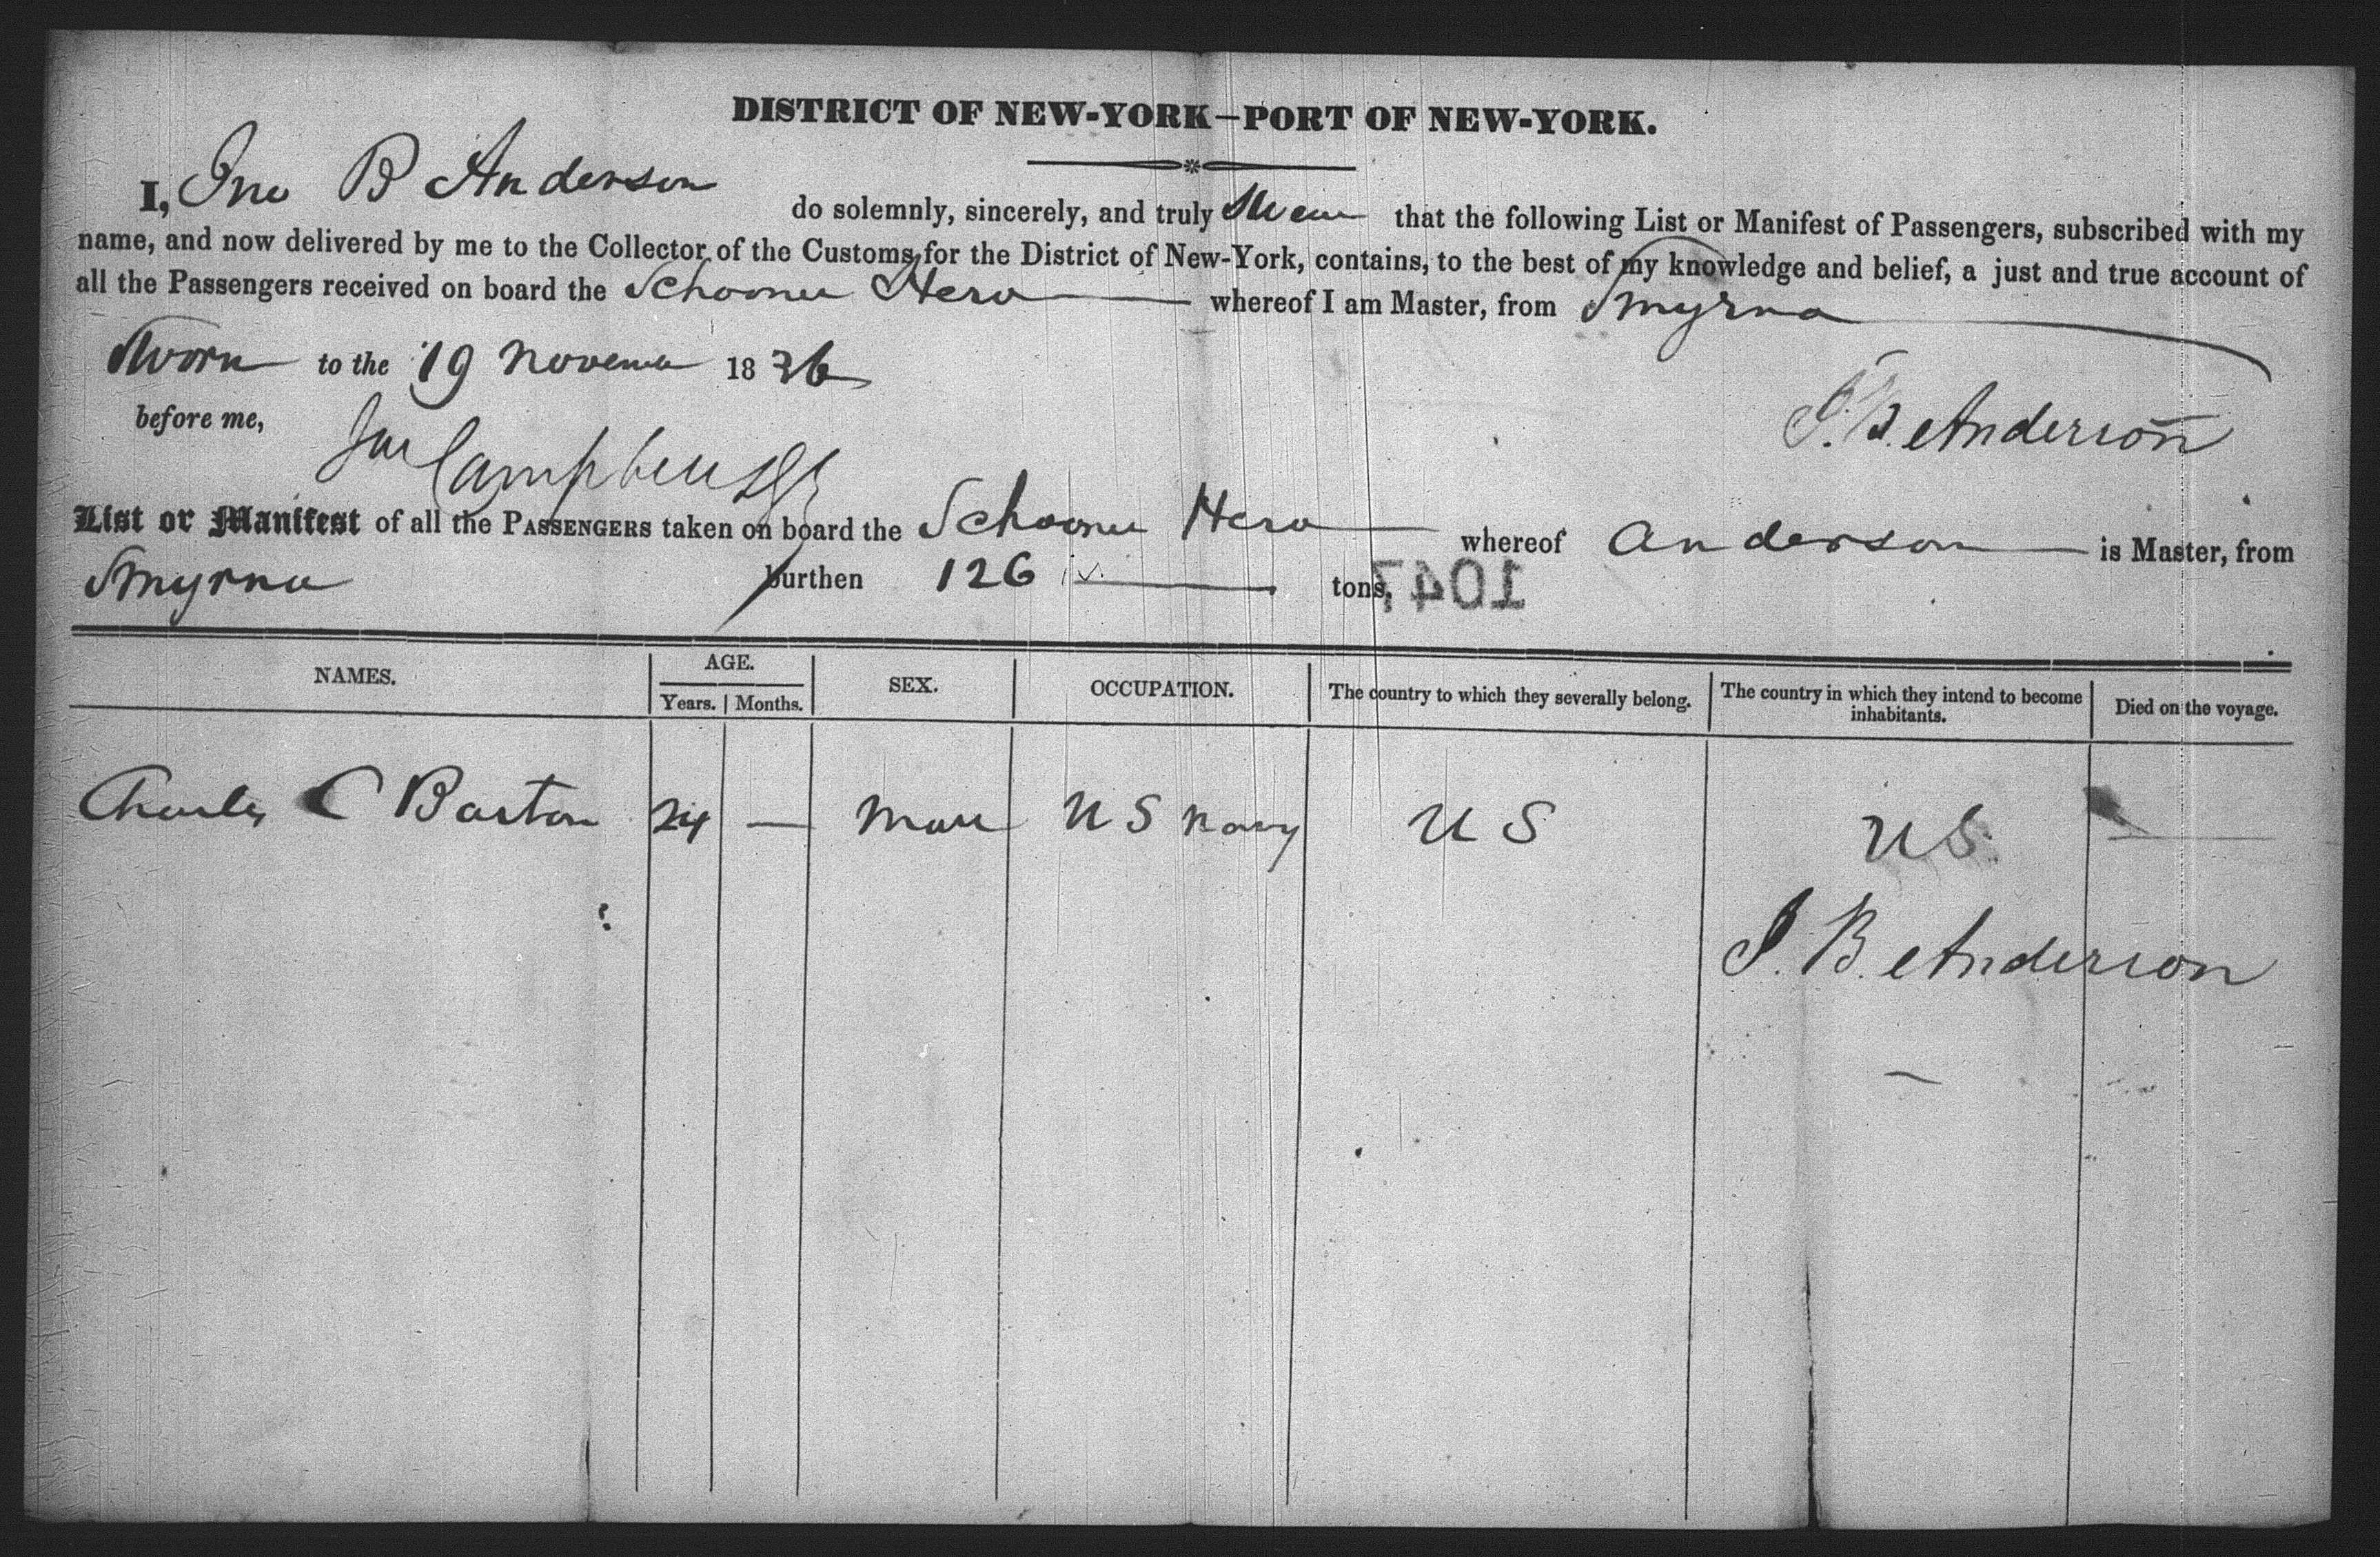 DISTRICT OF NEW-YORK—PORT OF NEW-YORK.
I, Jno B Anderson do solemnly, sincerely, and truly Swear that the following List or Manifest of Passengers, subscribed with my
name, and now delivered by me to the Collector of the Customs for the District of New-York, contains, to the best of my knowledge and belief, a just and true account of
all the Passengers received on board the Schooner Hero whereof I am Master, from Smyrna
Sworn to the 19 November 1836
before me,
J. B. Anderson
Campbell
List or Manifest of all the PASSENGERS taken on board the Schooner Hero whereof Anderson is Master, from
Smyrna burthen 126 tons, 1047
NAMES. AGE. SEX. OCCUPATION. The country to which they severally belong. The country in which they intend to become inhabitants. Died on the voyage.
Years. Months.
Charles C Barton 24 — Male US Navy US US —
J. B. Anderson